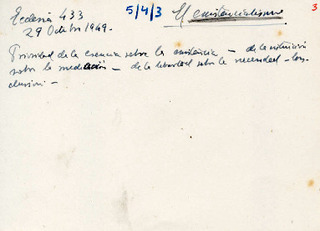 Ecclesia 433
5/4/3
El existencialismo
3
29 Octubre 1949.
Prioridad de la esencia sobre la existencia – de la intuición
sobre la mediación – de la libertad sobre la necesidad – Con
clusión –